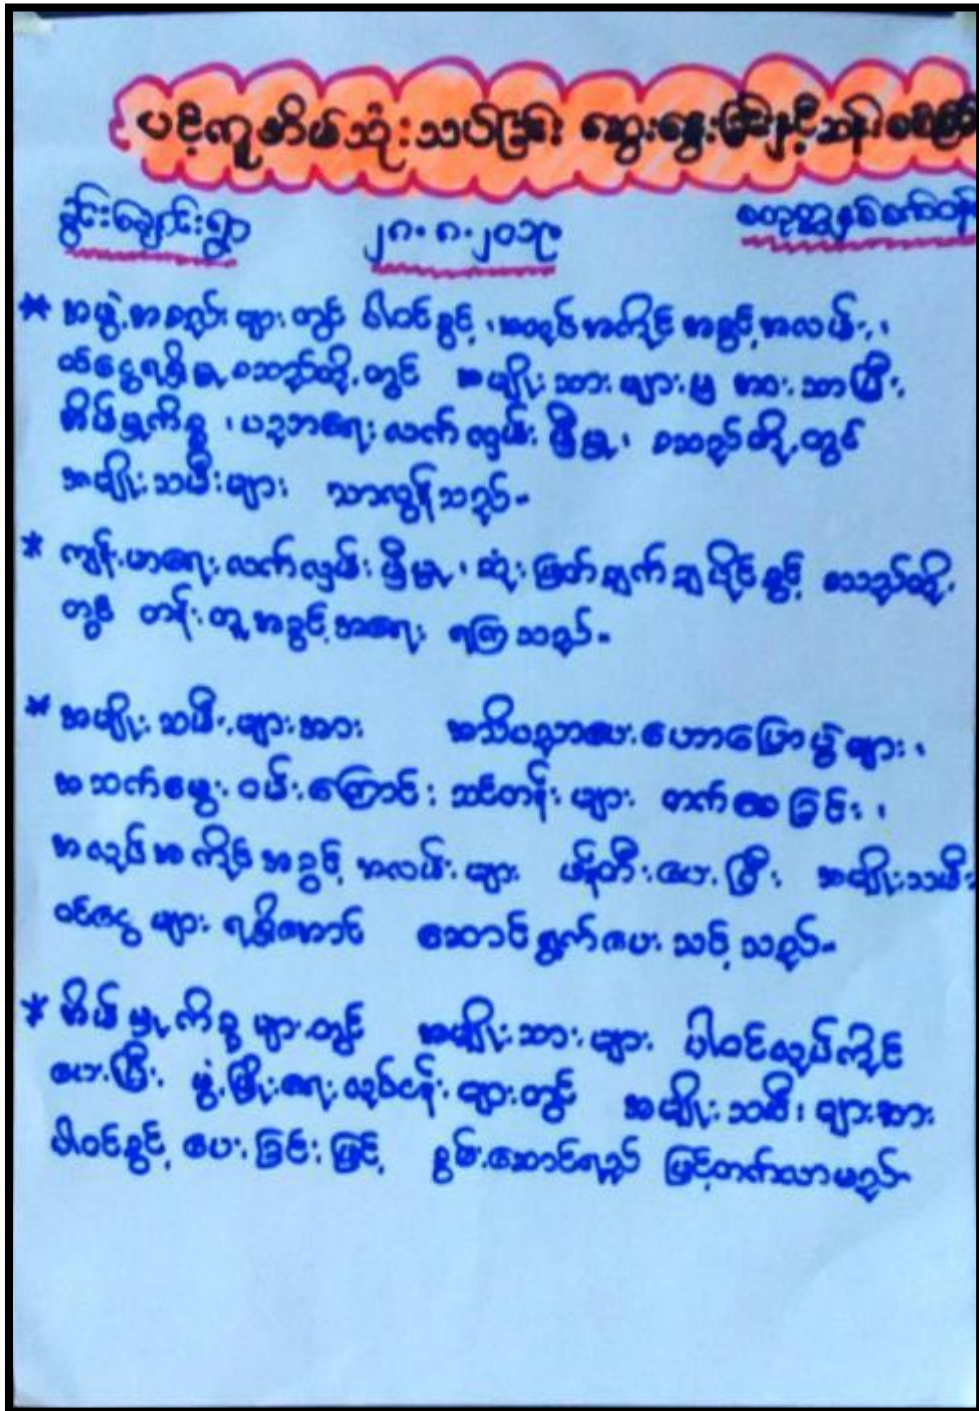 ပံ့ကူအိမ်သုံးသပ်ခြင်း ဆွေးနွေးခြင်းနှင့်ဆန်းစစ်
ခွင်းချောင်းရွာ ၂၈.၈.၂၀၁၉ စတုတ္ထနှစ်ဝက်
* အဖွဲ့အစည်းများတွင် ပါဝင်ခွင့်၊ အလုပ်အကိုင်အခွင့်အလမ်း၊
ဝင်ငွေရရှိမှု စသည်တို့တွင် အမျိုးသားများမှ အားသာပြီး
အိမ်မှုကိစ္စ၊ ပညာရေးလက်လှမ်းမှီမှု၊ စသည်တို့တွင်
အမျိုးသမီးများ သာလွန်သည်။
* ကျန်းမာရေးလက်လှမ်းမှီမှု၊ ဆုံးဖြတ်ချက်ချပိုင်ခွင့် စသည်တို့
တွင် တန်းတူအခွင့်အရေး ရကြသည်။
* အမျိုးသမီးများအား အသိပညာပေးဟောပြောပွဲများ၊
အသက်မွေးဝမ်းကြောင်းသင်တန်းများ တက်စေခြင်း၊
အလုပ်အကိုင်အခွင့်အလမ်းများ ဖန်တီးပေးပြီး အမျိုးသမီး
ဝင်ငွေများ ရရှိအောင် ဆောင်ရွက်ပေးသင့်သည်။
* အိမ်မှုကိစ္စများတွင် အမျိုးသားများ ပါဝင်လုပ်ကိုင်
ပေးပြီး ဖွံ့ဖြိုးရေးလုပ်ငန်းများတွင် အမျိုးသမီးများအား
ပါဝင်ခွင့်ပေးခြင်းဖြင့် စွမ်းဆောင်ရည် မြင့်တက်လာမည်